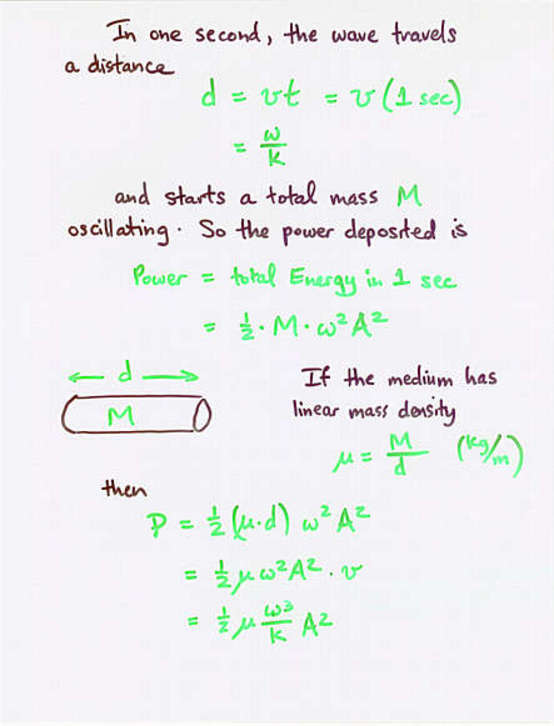 In one second, the wave travels
a distance
d = vt = v (1 sec)
= ω/k
and starts a total mass M
oscillating. So the power deposited is
Power = total Energy in 1 sec
= 1/2 · M · ω²A²
← d →
M
If the medium has
linear mass density
μ = M/d (kg/m)
then
P = 1/2 (μ·d) ω²A²
= 1/2 μω²A² · v
= 1/2 μ ω³/k A²